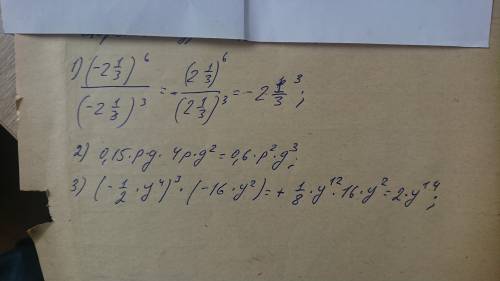 1) (-2 1/3)^6 / (-2 1/3)^3 = -(2 1/3)^6 / (2 1/3)^3 = -2 1/3^3;
2) 0,15·p·g·4p·g^2=0,6·p^2·g^3;
3) (-1/2·y^4)^3·(-16·y^2)=+1/8·y^12·16·y^2=2·y^14;